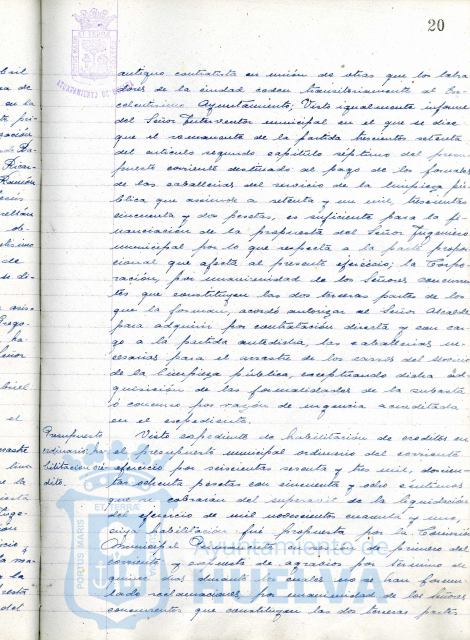 20
antiguo contratista en unión de otras que los labra-
dores de la ciudad ceden transitoriamente al Ex-
celentísimo Ayuntamiento; Visto igualmente informe
del Señor Interventor municipal en el que se dice
que el remanente de la partida trescientos setenta
del artículo segundo capítulo séptimo del presu-
puesto corriente destinado al pago de los jornales
de las caballerías del servicio de la limpieza pú-
blica que asciende a setenta y un mil, trescientas
cincuenta y dos pesetas, es suficiente para la fi-
nanciación de la propuesta del Señor Ingeniero
municipal por lo que respecta a la parte propor-
cional que afecta al presente ejercicio; la Corpo-
ración, por unanimidad de los Señores concurren-
tes que constituyen las dos terceras partes de los
que la forman, acordó autorizar al Señor Alcalde
para adquirir por contratación directa y con car-
go a la partida antedicha, las caballerías ne-
cesarias para el arrastre de los carros del servicio
de la limpieza pública, exceptuando dicha ad-
quisición de las formalidades de la subasta
ó concurso por razón de urgencia acreditada
en el expediente.
Presupuesto
ordinario: ha-
bilitación cré-
dito.
Visto expediente de habilitación de créditos en
el presupuesto municipal ordinario del corriente
ejercicio por seiscientas sesenta y tres mil, doscien-
tas ochenta pesetas con cincuenta y ocho céntimos
que se cobrarán del superavit de la liquidación
del ejercicio de mil novecientos cuarenta y uno,
cuya habilitación fué propuesta por la Comisión
Municipal Permanente en de primero del
corriente y expuesta al público por término de
quince días durante los cuales no se han formu-
lado reclamaciones, por unanimidad de los Señores
concurrentes que constituyen las dos terceras partes
Ayuntamiento de
HUELVA
PORTUS MARIS
ET TERRÆ